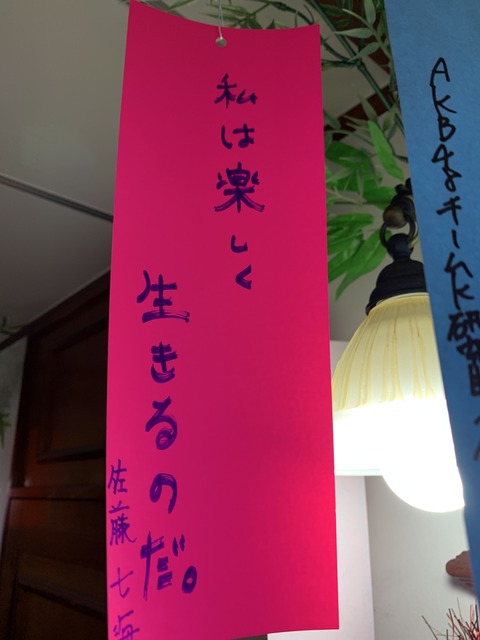 私は楽しく
生きるのだ。
佐藤七海
AKB48チームK研究生